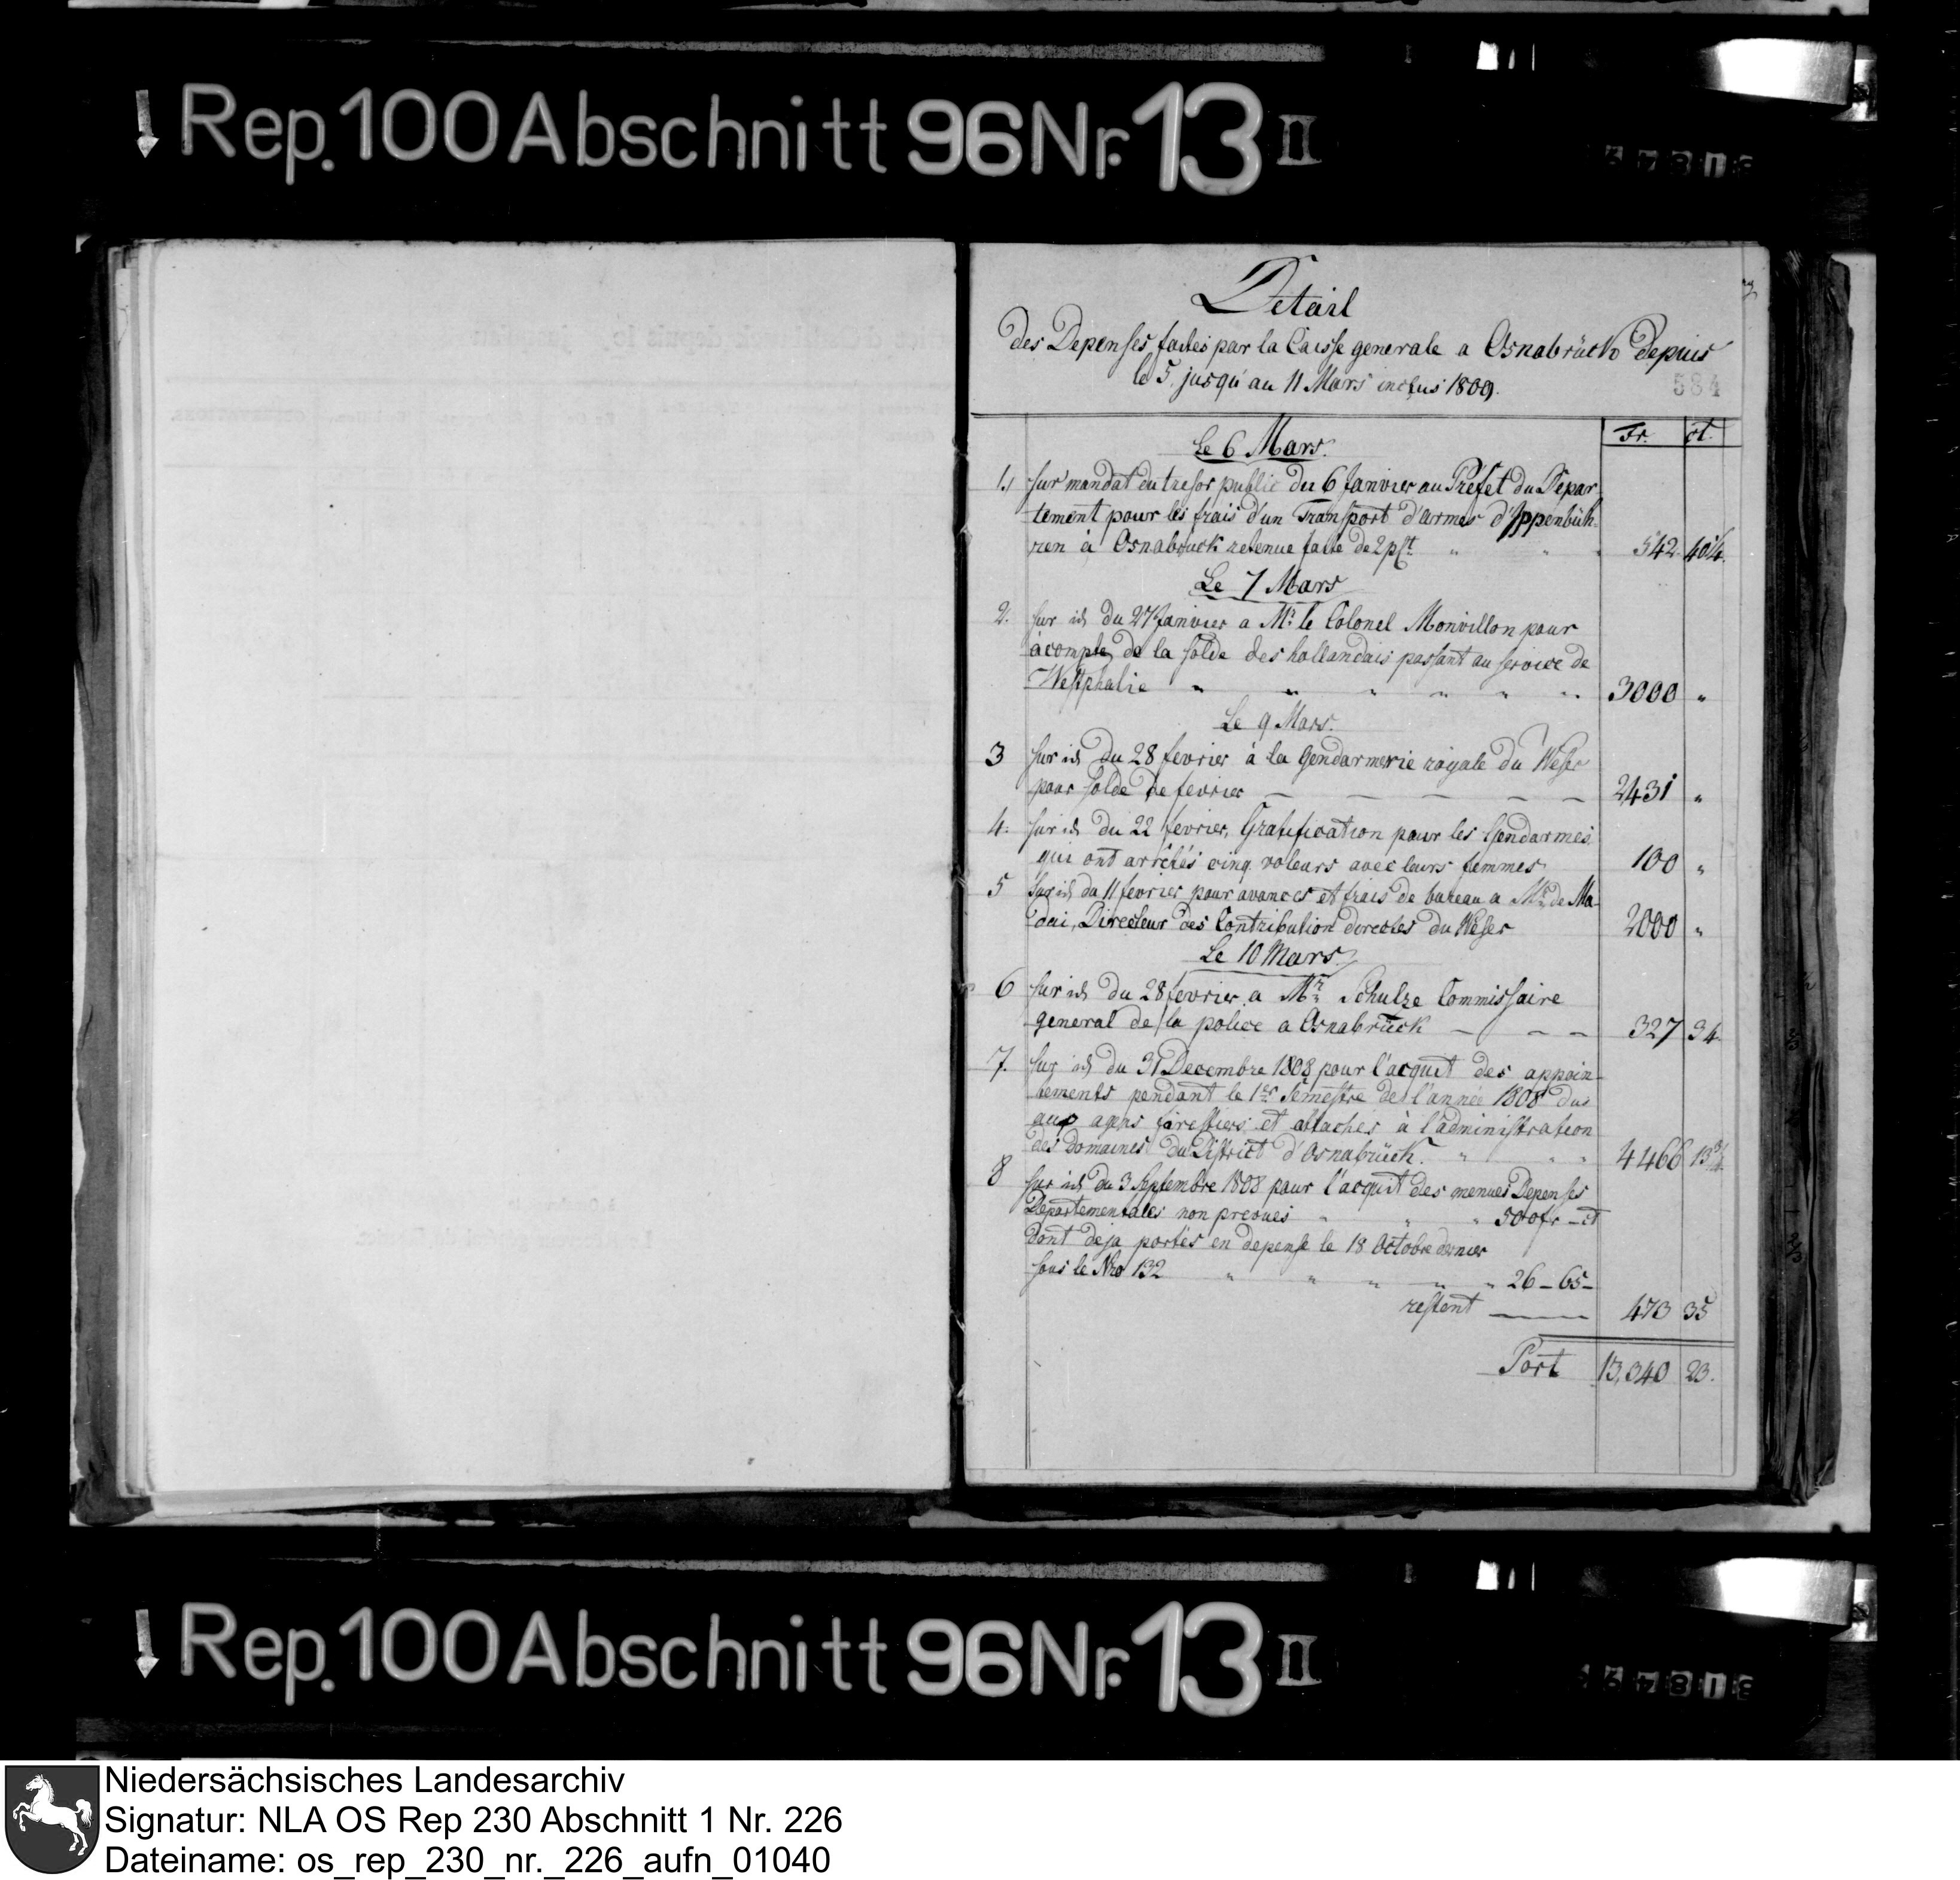 Rep. 100 Abschnitt 96 Nr. 13 II
Detail
des Depenses faites par la Caisse generale a Osnabrück Depuis
le 5. jusqu'au 11 Mars inclus 1809.
584
Fr. ct.
Le 6 Mars.
1., sur mandat du tresor public du 6 Janvier au Préfet du Depar
tement pour les frais d'un Transport d'armes d'Ippenbüh
ren à Osnabruck retenue faite de 2 pct " " 542. 40¼.
Le 7 Mars
2. sur id du 27 Janvier a Mr. le Colonel Monvillon pour
àcompte de la solde des hollandais passant au service de
Westphalie " " " " " " 3000 "
Le 9 Mars.
3 sur id du 28 fevrier à la Gendarmerie royale du Weser
pour solde de fevrier — — — — — 2431 "
4. sur id du 22 fevrier, Gratification pour les Gendarmes
qui ont arrêtés cinq voleurs avec leurs femmes 100 "
5 sur id du 11 fevrier pour avances et frais de bureau a Mr. de Ma
dai, Directeur des Contribution directes du Weser 2000 "
Le 10 Mars.
6 sur id du 28 fevrier a Mr. Schulze Commissaire
general de la police a Osnabrück — — — 327 34
7. sur id du 31 Decembre 1808 pour l'acquit des appoin
tements pendant le 1er Semestre de l'année 1808 dus
aux agens forestiers et attachés à l'administration
des Domaines du District d'Osnabrück. " " " 4466 13¾
8 sur id du 3 Septembre 1808 pour l'acquit des menues Depenses
Departementales non prevues " " " 500 fr – ct
dont deja portés en depense le 18 Octobre dernier
sous le Nro 132 " " " " " 26 – 65 –
restent —— 473 35
Port 13,340 23.
Rep. 100 Abschnitt 96 Nr. 13 II
Niedersächsisches Landesarchiv
Signatur: NLA OS Rep 230 Abschnitt 1 Nr. 226
Dateiname: os_rep_230_nr._226_aufn_01040